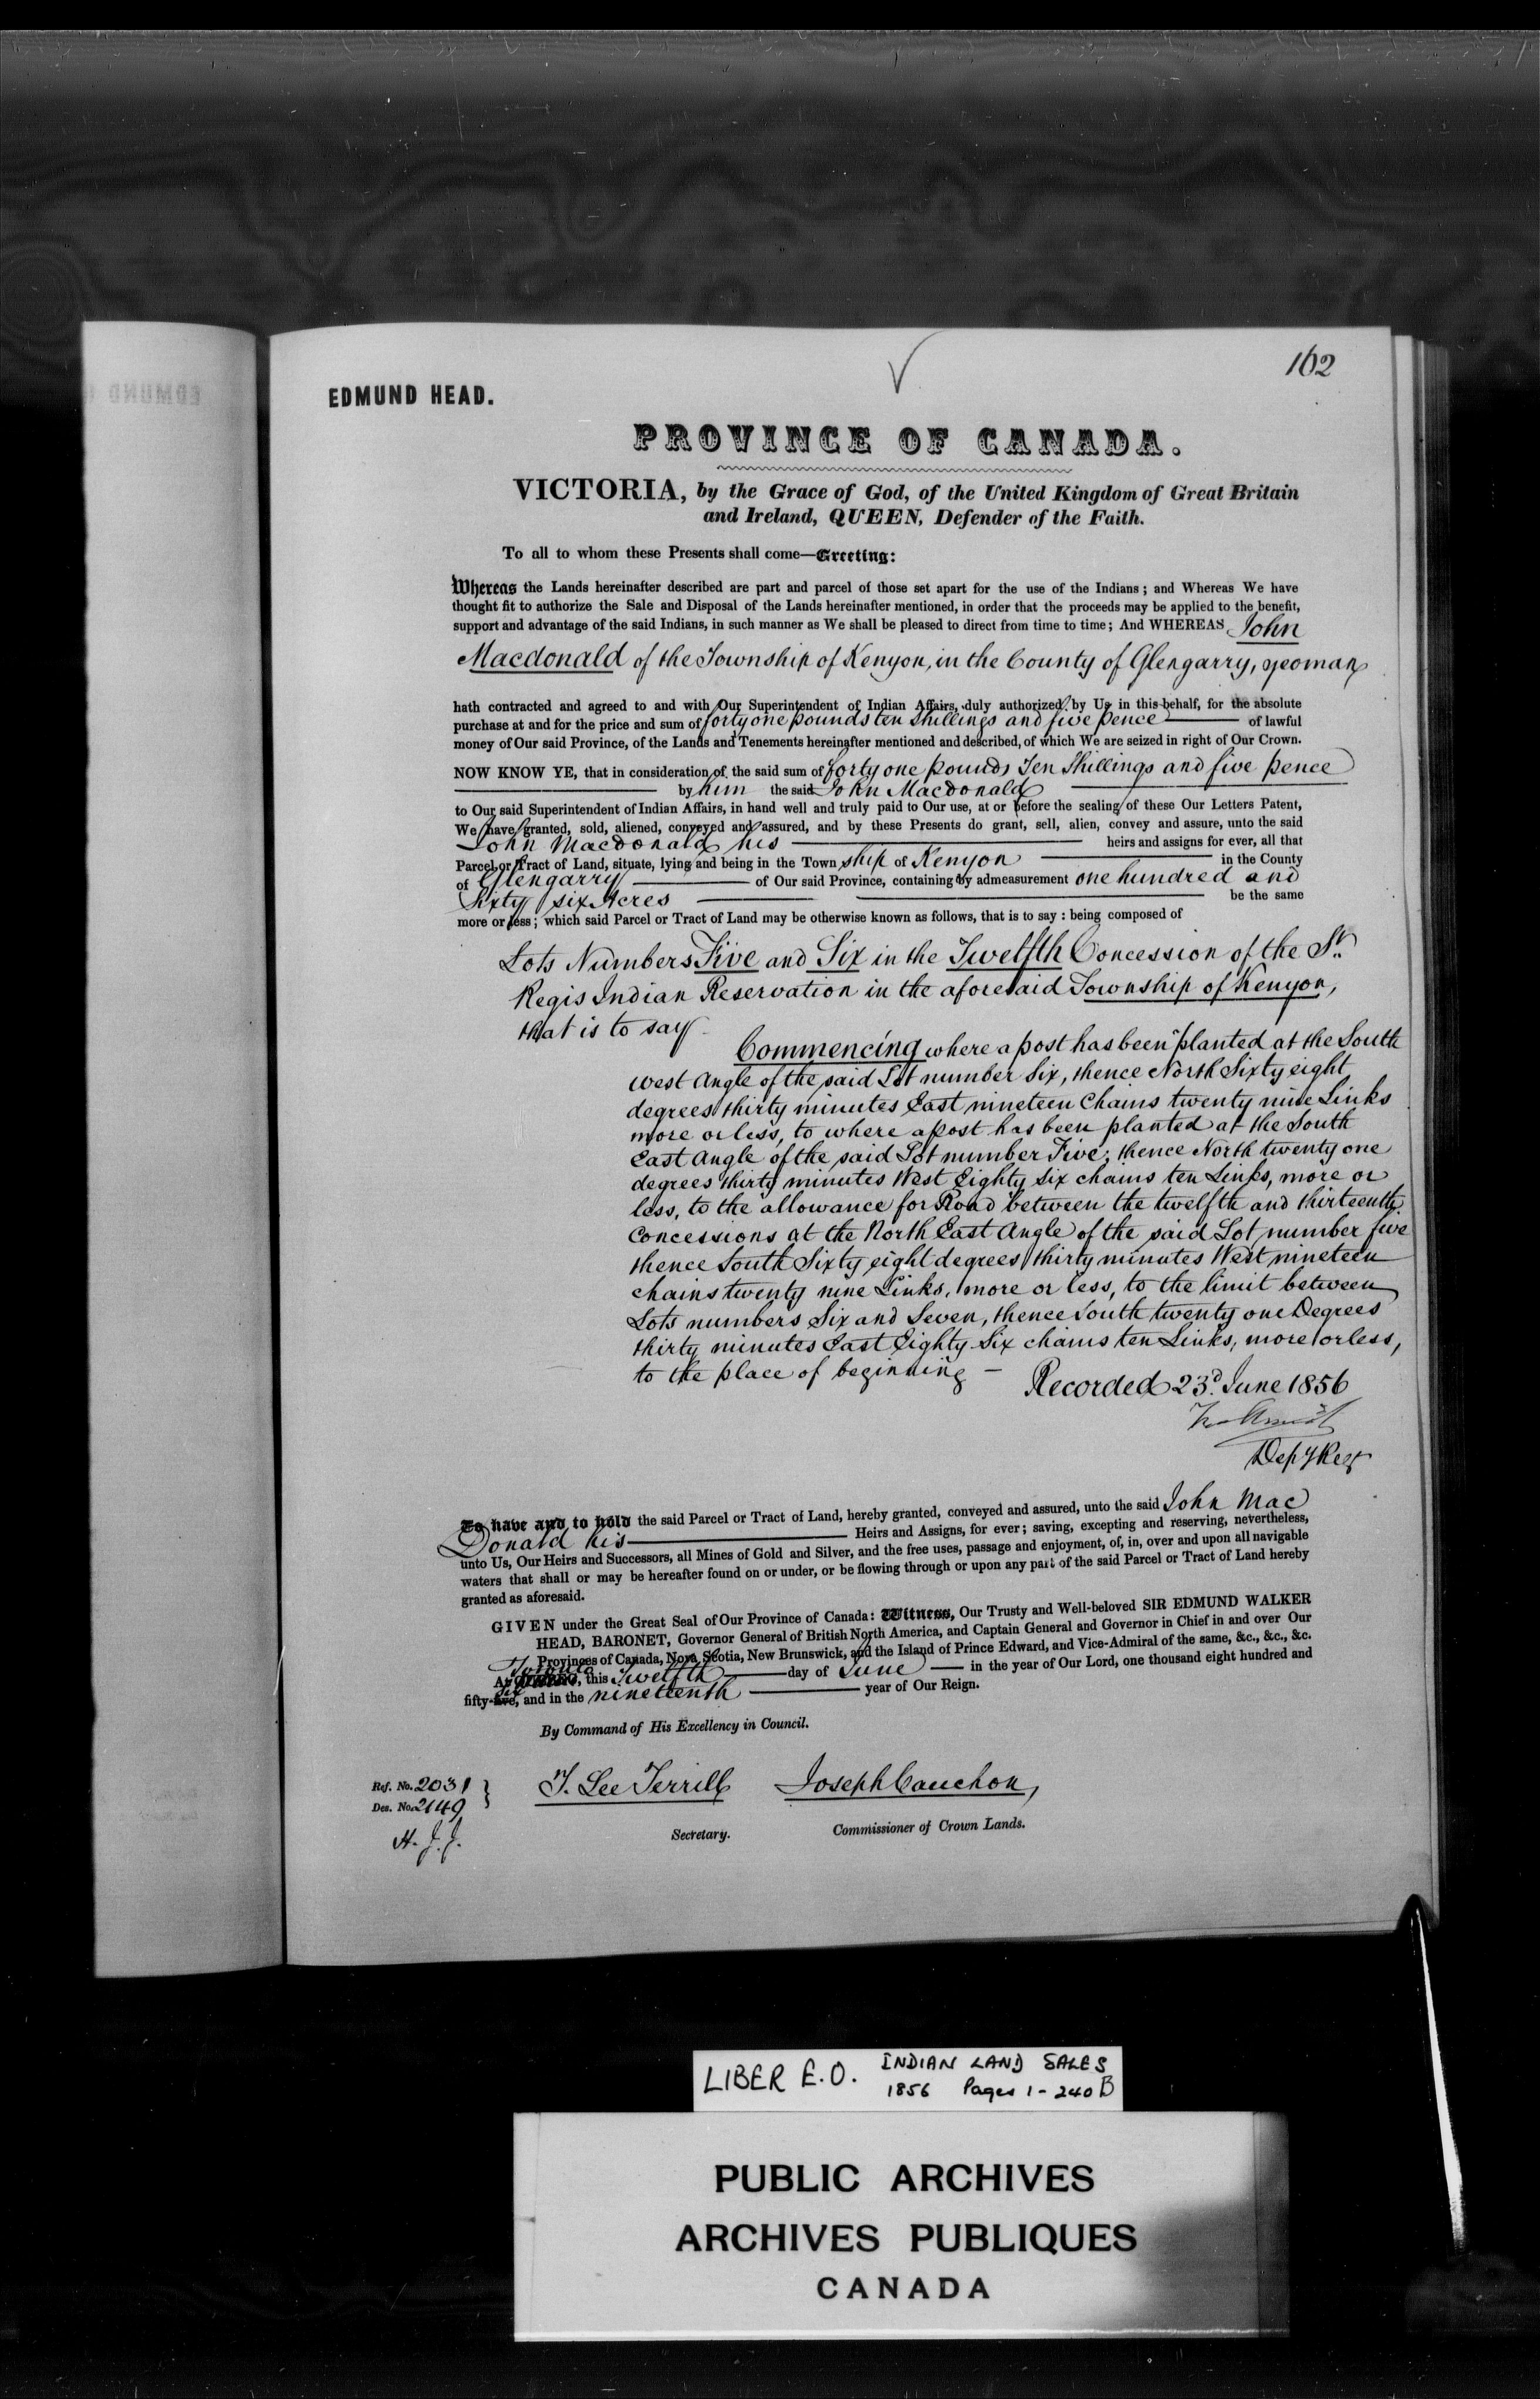 162
EDMUND HEAD.
PROVINCE OF CANADA.
VICTORIA, by the Grace of God, of the United Kingdom of Great Britain
and Ireland, QUEEN, Defender of the Faith.
To all to whom these Presents shall come—Greeting:
Whereas the Lands hereinafter described are part and parcel of those set apart for the use of the Indians; and Whereas We have
thought fit to authorize the Sale and Disposal of the Lands hereinafter mentioned, in order that the proceeds may be applied to the benefit,
support and advantage of the said Indians, in such manner as We shall be pleased to direct from time to time; And WHEREAS John
Macdonald of the Township of Kenyon, in the County of Glengarry, yeoman
hath contracted and agreed to and with Our Superintendent of Indian Affairs, duly authorized by Us in this behalf, for the absolute
purchase at and for the price and sum of forty one pounds ten shillings and five pence of lawful
money of Our said Province, of the Lands and Tenements hereinafter mentioned and described, of which We are seized in right of Our Crown.
NOW KNOW YE, that in consideration of the said sum of forty one pounds Ten Shillings and five pence
by him the said John Macdonald
to Our said Superintendent of Indian Affairs, in hand well and truly paid to Our use, at or before the sealing of these Our Letters Patent,
We have granted, sold, aliened, conveyed and assured, and by these Presents do grant, sell, alien, convey and assure, unto the said
John Macdonald his heirs and assigns for ever, all that
Parcel or Tract of Land, situate, lying and being in the Town ship of Kenyon in the County
of Glengarry of Our said Province, containing by admeasurement one hundred and
Sixty six Acres be the same
more or less; which said Parcel or Tract of Land may be otherwise known as follows, that is to say: being composed of
Lots Numbers Five and Six in the Twelfth Concession of the St.
Regis Indian Reservation in the aforesaid Township of Kenyon,
that is to say
Commencing where a post has been planted at the South
West Angle of the said Lot number Six, thence North Sixty eight
degrees thirty minutes East nineteen Chains twenty nine Links
more or less, to where a post has been planted at the South
East Angle of the said Lot number Five; thence North twenty one
degrees thirty minutes West Eighty six chains ten Links, more or
less, to the allowance for Road between the twelfth and thirteenth
Concessions at the North East Angle of the said Lot number five
thence South Sixty eight degrees thirty minutes West nineteen
chains twenty nine Links, more or less, to the limit between
Lots numbers Six and Seven, thence South twenty one Degrees
thirty minutes East Eighty Six chains ten Links, more or less,
to the place of beginning —
Recorded 23d. June 1856
Depy Regr
To have and to hold the said Parcel or Tract of Land, hereby granted, conveyed and assured, unto the said John Mac
Donald his Heirs and Assigns, for ever; saving, excepting and reserving, nevertheless,
unto Us, Our Heirs and Successors, all Mines of Gold and Silver, and the free uses, passage and enjoyment, of, in, over and upon all navigable
waters that shall or may be hereafter found on or under, or be flowing through or upon any part of the said Parcel or Tract of Land hereby
granted as aforesaid.
GIVEN under the Great Seal of Our Province of Canada: Witness, Our Trusty and Well-beloved SIR EDMUND WALKER
HEAD, BARONET, Governor General of British North America, and Captain General and Governor in Chief in and over Our
Provinces of Canada, Nova Scotia, New Brunswick, and the Island of Prince Edward, and Vice-Admiral of the same, &c., &c., &c.
Toronto
At QUEBEC, this Twelfth day of June in the year of Our Lord, one thousand eight hundred and
six
fifty-five, and in the nineteenth year of Our Reign.
By Command of His Excellency in Council.
Ref. No. 2031
Des. No. 2149
H. J. J.
T. Lee Terrill
Secretary.
Joseph Cauchon,
Commissioner of Crown Lands.
LIBER E.O. INDIAN LAND SALES
1856 Pages 1 - 240 B
PUBLIC ARCHIVES
ARCHIVES PUBLIQUES
CANADA